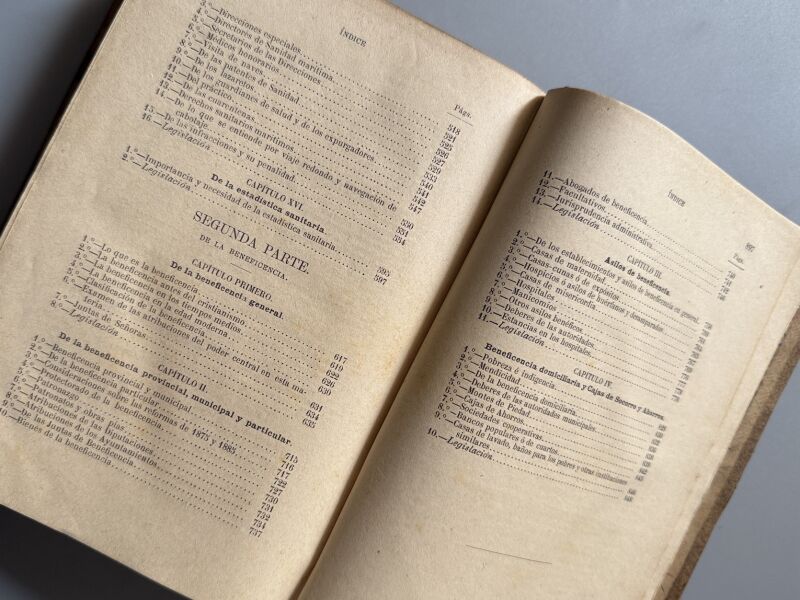 ÍNDICE
Págs.
3.º—Direcciones especiales 518
4.º—Directores de Sanidad marítima 521
5.º—Secretarios de las Direcciones 525
6.º—Médicos honorarios 526
7.º—Visita de naves 527
8.º—De las patentes de Sanidad 529
9.º—De los lazaretos 533
10.—De los guardianes de salud y de los expurgadores 540
11.—Del práctico 541
12.—De las cuarentenas 542
13.—Derechos sanitarios marítimos 547
14.—De lo que se entiende por viaje redondo y navegación de
cabotaje 550
15.—De las infracciones y su penalidad 551
16.—Legislación 554
CAPÍTULO XVI.
De la estadística sanitaria.
1.º—Importancia y necesidad de la estadística sanitaria 595
2.º—Legislación 597
SEGUNDA PARTE.
DE LA BENEFICENCIA.
CAPÍTULO PRIMERO.
De la beneficencia general.
1.º—Lo que es la beneficencia 617
2.º—La beneficencia antes del cristianismo 619
3.º—La beneficencia en los tiempos medios 622
4.º—La beneficencia en la edad moderna 626
5.º—Clasificación de la beneficencia 630
6.º—Examen de las atribuciones del poder central en esta ma-
teria 631
7.º—Juntas de Señoras 634
8.º—Legislación 635
CAPÍTULO II.
De la beneficencia provincial, municipal y particular.
1.º—Beneficencia provincial y municipal 715
2.º—De la beneficencia particular 716
3.º—Consideraciones sobre las reformas de 1875 y 1885 717
4.º—Protectorado de la beneficencia 722
5.º—Patronazgo 727
6.º—Patronatos y obras pías 730
7.º—Atribuciones de las Diputaciones 731
8.º—Atribuciones de los Ayuntamientos 732
9.º—De las Juntas de Beneficencia 734
10.—Bienes de la beneficencia 737
ÍNDICE
897
Págs.
11.—Abogados de beneficencia
12.—Facultativos
13.—Jurisprudencia administrativa
14.—Legislación
CAPÍTULO III.
Asilos de beneficencia.
1.º—De los establecimientos y asilos de beneficencia en general
2.º—Casas de maternidad
3.º—Casas-cunas ó de expósitos
4.º—Hospicios ó asilos de huérfanos y desamparados
5.º—Casas de misericordia
6.º—Hospitales
7.º—Manicomios
8.º—Otros asilos benéficos
9.º—Deberes de las autoridades
10.—Estancias en los hospitales
11.—Legislación
CAPÍTULO IV.
Beneficencia domiciliaria y Cajas de Socorro y Ahorros.
1.º—Pobreza é indigencia
2.º—Mendicidad
3.º—De la beneficencia domiciliaria
4.º—Deberes de las autoridades municipales
5.º—Montes de Piedad
6.º—Cajas de Ahorros
7.º—Sociedades cooperativas
8.º—Bancos populares ó de cuartos
9.º—Casas de lavado, baños para los pobres y otras instituciones
similares
10.—Legislación